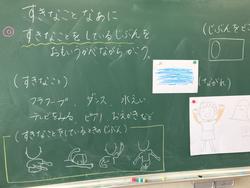 すきなこと なあに
すきなことをしているじぶんを
おもいうかべながらかこう。
(じぶんをどこ
(すきなこと)
(ながれ)
フラフープ ダンス 水えい
テレビをみる ピアノ おえかきなど
(すきなことをしているときのじぶん)